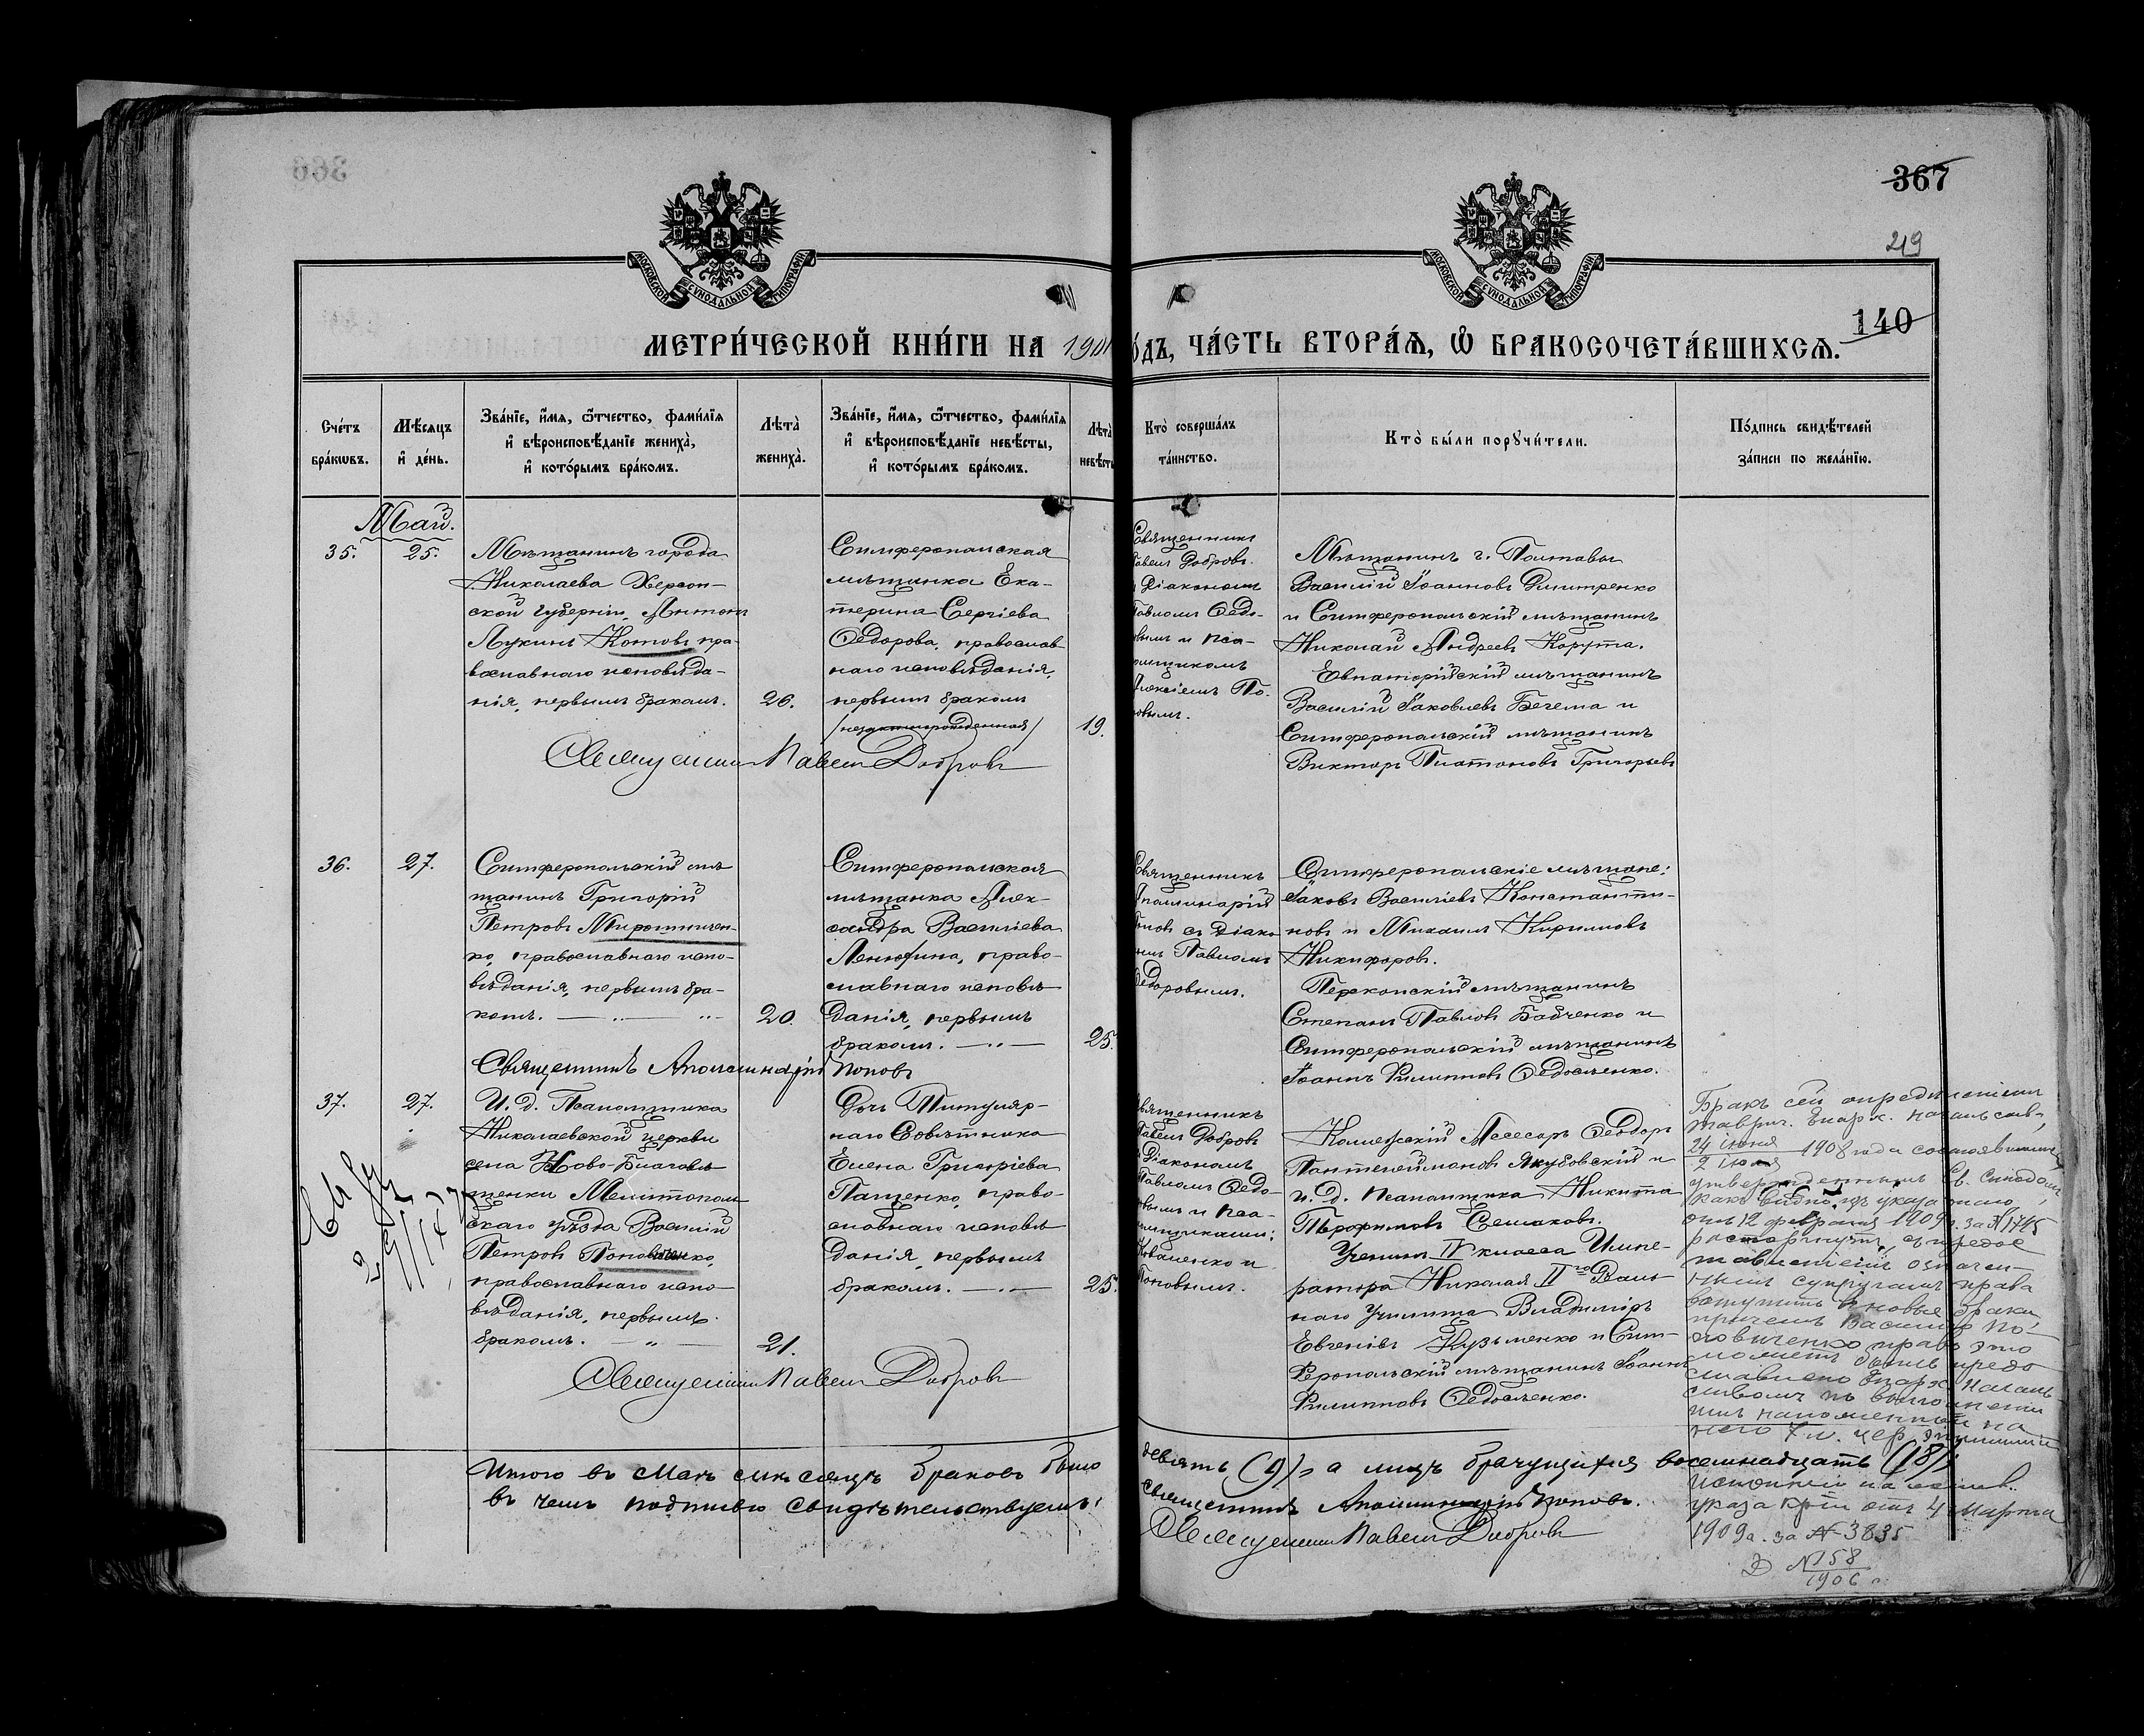 367
219
140
МОСКОВСКОЙ СѴНОДАЛЬНОЙ ТИПОГРАФІИ
МОСКОВСКОЙ СѴНОДАЛЬНОЙ ТИПОГРАФІИ
МЕТРИ́ЧЕСКОЙ КНИ́ГИ НА 190
О́ДЪ, ЧА́СТЬ ВТОРА́Ѧ, Ѡ҆ БРАКОСОЧЕТА́ВШИХСѦ.
Сче́тъ бра́кѡвъ.
Мѣ́сѧцъ и҆ де́нь.
Зва́нїе, и҆́мѧ, ѻ҆́тчество, фами́лїѧ
и҆ вѣроисповѣ́данїе жениха̀,
и҆ кото́рымъ бра́комъ.
Лѣ́та̀ жениха̀.
Зва́нїе, и҆́мѧ, ѻ҆́тчество, фами́лїѧ
и҆ вѣроисповѣ́данїе невѣ́сты,
и҆ кото́рымъ бра́комъ.
Лѣ́та̀
невѣ́сты
Кто̀ соверша́лъ
та́инство.
Кто̀ бы́ли порꙋчи́тели.
По́дпись свидѣ́телей
за́писи по жела́нїю.
Май.
35.
25.
Мѣщанинъ города
Николаева Херсон-
ской губерніи, Антонъ
Лукинъ Котовъ, пра-
вославнаго исповѣда-
нія, первымъ бракомъ.
26.
Симферопольская
мѣщанка Ека-
терина Сергіева
Ѳедорова, православ-
наго исповѣданія,
первымъ бракомъ
/незаконнорожденная/
19.
Священникъ
Павелъ Добровъ
Діакономъ
Павломъ Ѳедо-
овымъ и пса-
омщикомъ
Алексіемъ По-
овымъ.
Мѣщанинъ г. Полтавы
Василій Іоанновъ Дмитренко
и Симферопольскій мѣщанинъ
Николай Андреевъ Корута.
Евпаторійскій мѣщанинъ
Василій Іаковлевъ Бегема и
Симферопольскій мѣщанинъ
Викторъ Платоновъ Григорьевъ
Священникъ Павелъ Добровъ
36.
27.
Симферопольскій мѣ-
щанинъ Григорій
Петровъ Мирошничен-
ко, православнаго испо-
вѣданія, первымъ бра-
комъ.
20.
Симферопольская
мѣщанка Алек-
сандра Василіева
православ
славнаго исповѣ-
данія, первымъ
бракомъ.
25.
Священникъ
Аполлинарій
Поповъ съ Діако-
номъ Павломъ
Ѳедоровымъ.
Симферопольскіе мѣщане:
Іаковъ Василіевъ Константи-
новъ и Михаилъ Кирилловъ
Никифоровъ.
Перекопскій мѣщанинъ
Степанъ Павловъ Бабченко и
Симферопольскій мѣщанинъ
Іоаннъ Филипповъ Ѳедосѣенко.
Священникъ Аполлинарій Поповъ
37.
27.
И. д. Псаломщика
Николаевской церкви
села Ново-Благовѣ-
щенки Мелитополь-
скаго уѣзда Василій
Петровъ
православнаго испо-
вѣданія, первымъ
бракомъ.
21.
Дочь Титуляр-
наго Совѣтника
Елена Григоріева
Пащенко, право-
славнаго исповѣ-
данія, первымъ
бракомъ.
25.
вященникъ
Павелъ Добровъ
Діакономъ
Павломъ Ѳедо-
овымъ и пса-
омщиками:
Коваленко и
Поповымъ.
Коллежскій Ассесоръ Ѳеодоръ
Пантелеймоновъ Якубовскій и
и. д. псаломщика Никита
Трофимовъ Семаковъ.
Ученикъ IV класса Импе-
ратора Николая II го Реаль-
наго Училища Владиміръ
Евгеніевъ Кузьменко и Сим-
феропольскій мѣщанинъ Іоаннъ
Филипповъ Ѳедосѣенко.
Священникъ Павелъ Добровъ
Бракъ сей опредѣленіемъ
Таврич. Епарх. начальства,
24 іюня
2 іюля 1908 года состоявшимся,
утвержденнымъ Св. Синодомъ
какъ видно изъ указа его
отъ 12 февраля 1909 г. за № 1745
расторгнутъ, съ предос-
тавленіемъ означен-
нымъ супругамъ права
вступить въ новые браки,
причемъ Василію По-
право это
можетъ быть предо-
ставлено Епарх. Началь-
ствомъ по выполненіи
имъ наложенной на
него 7 л. цер. эпитиміи
указа отъ 4 Марта
1909 г. за № 3835
Д № 158
1906 г.
Итого въ Маѣ мѣсяцѣ браковъ было
девять (9), а лицъ брачущихся восемнадцать (18),
въ чемъ подписью свидѣтельствуемъ:
священникъ Аполлинарій Поповъ.
Священникъ Павелъ Добровъ